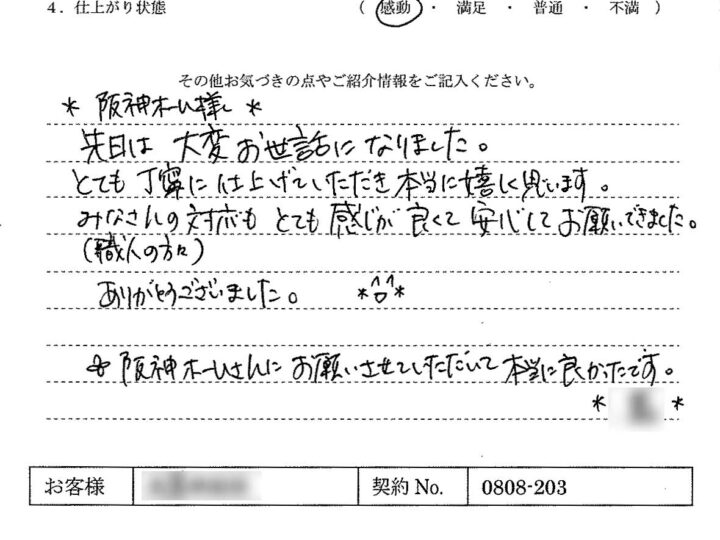 4．仕上がり状態 （ 感動 ・ 満足 ・ 普通 ・ 不満 ）
その他お気づきの点やご紹介情報をご記入ください。
* 阪神ホーム様 *
先日は 大変 お世話に なりました。
とても 丁寧に 仕上げていただき 本当に 嬉しく 思います。
みなさんの 対応も とても 感じが 良くて 安心して お願いできました。
(職人の方々)
ありがとうございました。 *^▽^*
☆ 阪神ホームさんに お願いさせていただいて 本当に 良かったです。
* *
お客様 契約 No. 0808-203